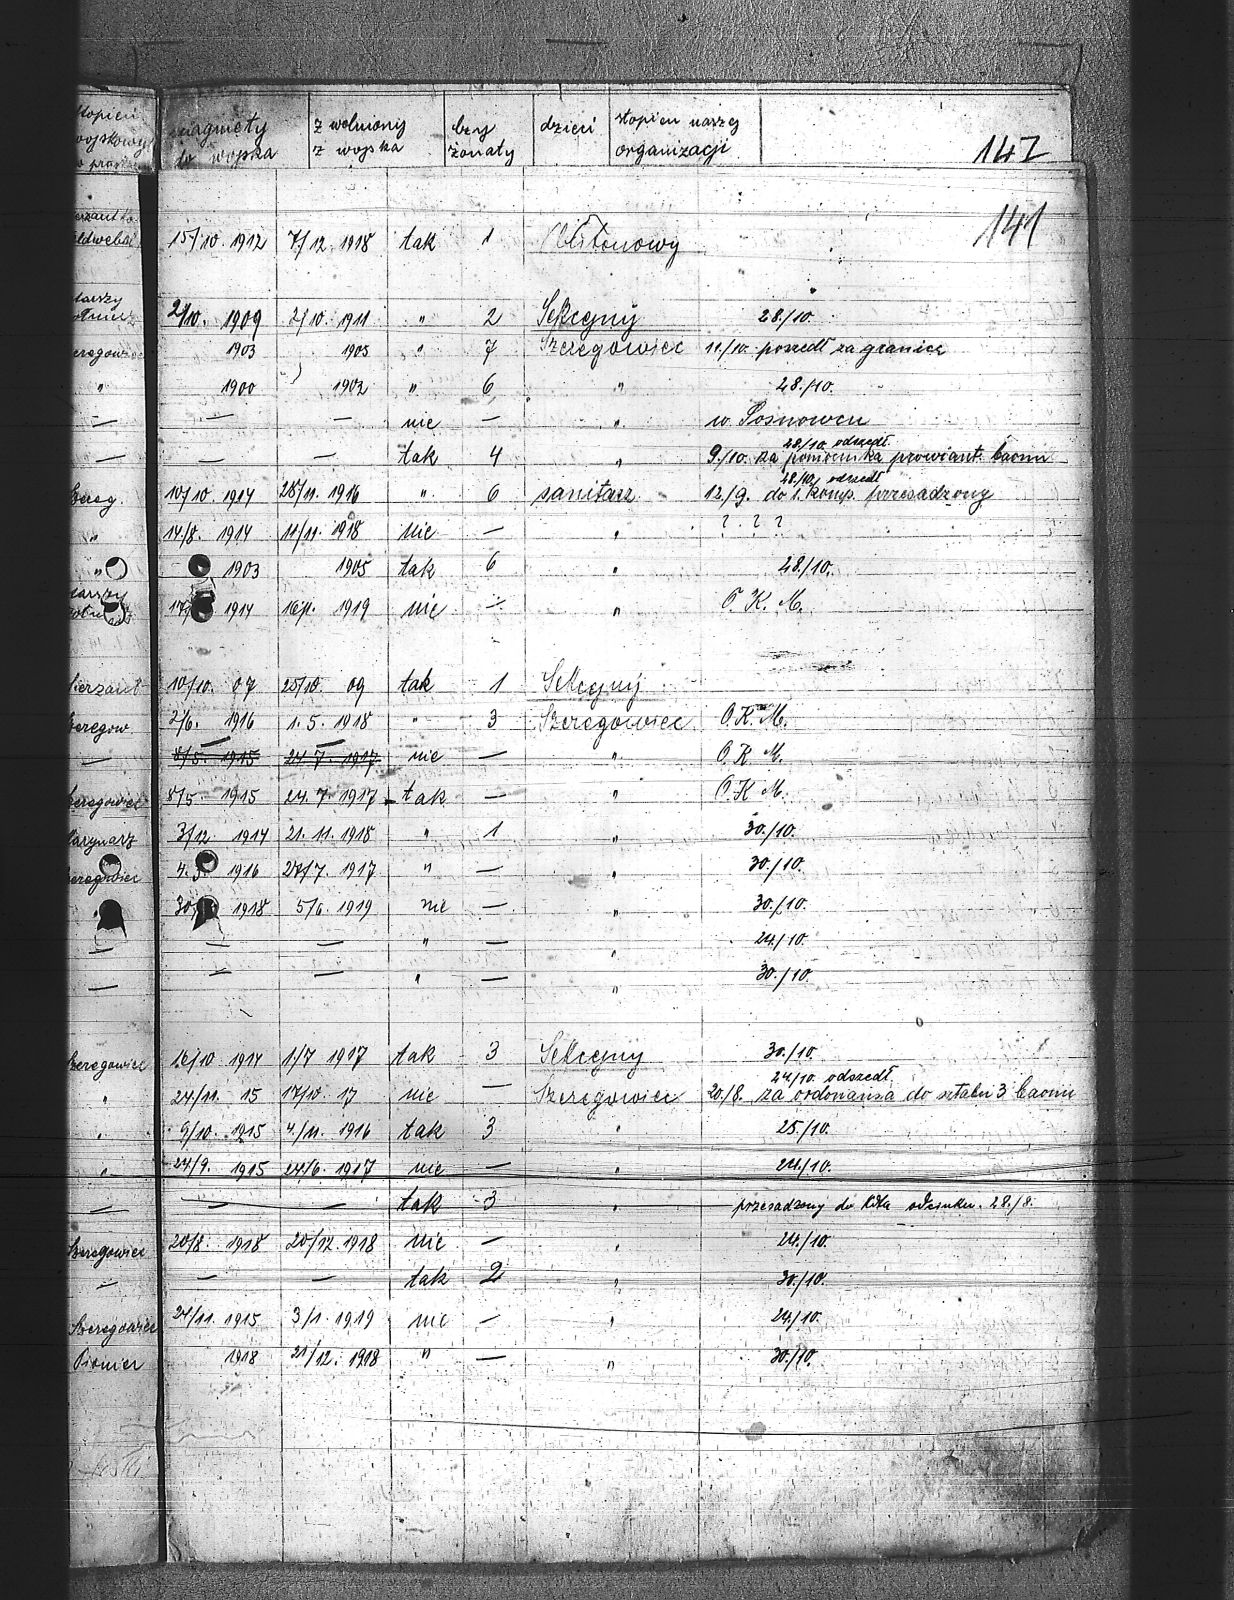 stopień wojskowy w prus. zaciągnięty do wojska z wolniony z wojska czy żonaty dzieci stopień naszej organizacji 147
141
15/10. 1912 7/12. 1918 tak 1 Plutonowy
1909 2/10. 1911 " 2 Sekcyjny 28./10.
1903 1905 " 7 Szeregowiec 11/10. poszedł za granicę
" 1900 1902 " 6 " 28./10.
— — — nie — " w Sosnowcu
28/10. odszedł
— — — tak 4 " 9/10. za pomocnika prowiant. baonu
28/10. odszedł
Szereg. 10/10 1914 28/11. 1916 " 6 sanitarz 12/9. do 1. komp. przesadzony
" 14/8. 1914 11/11. 1918 nie — " ? . ? ?
" 1903 1905 tak 6 " 28/10.
1914 1919 nie — " O. K. M.
Sierzant 10/10. 07 25/10. 09 tak 1 Sekcyjny
Szeregow. 2/6. 1916 1. 5. 1918 " 3 Szeregowiec O. K. M.
— 8/5. 1915 24. 7. 1917 nie — " O. K. M.
Szeregowiec 8/5. 1915 24. 7. 1917 tak — " O. K. M.
Marynarz 3/12 1914 21. 11. 1918 " 1 " 30./10.
Szeregowiec 1916 1917 " — " 30./10.
1918 5/6. 1919 nie — " 30./10.
— — — " — " 24./10.
— — — " — " 30./10.
Szeregowiec 16/10 1914 1./7 1917 tak 3 Sekcyjny 30./10.
24/10. odszedł
" 24/11. 15 17/10. 17 nie — Szeregowiec 20./8. za ordonansa do sztabu 3 baonu
" 9/10. 1915 4./11. 1916 tak 3 " 25/10.
" 24/9. 1915 24/6. 1917 nie — " 24./10.
— — — tak 3 " przesadzony do odcinku. 28./8.
Szeregowiec 20/8. 1918 20/12. 1918 nie — " 24./10.
— — — tak 2 " 30./10.
Szeregowiec 24/11. 1915 3/1. 1919 nie — " 24./10.
Pionier 1918 21/12. 1918 " — " 30./10.